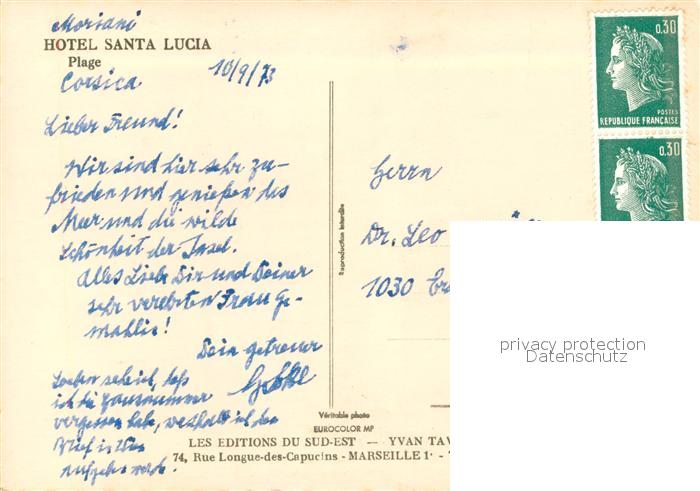 Moriani
HOTEL SANTA LUCIA
Plage
Corsica 10/9/73
Lieber Freund!
Wir sind hier sehr zu-
frieden und genießen das
Meer und die wilde
Schönheit der Insel.
Alles Liebe Dir und Deiner
sehr verehrten Frau Ge-
mahlin!
Dein getreuer
Soeben sehe ich, daß
ich die Hausnummer
vergessen habe, weshalb ich den
Brief in Wien
aufgeben werde.
Reproduction interdite
Véritable photo
EUROCOLOR MP
LES EDITIONS DU SUD-EST — YVAN TAV
74, Rue Longue-des-Capucins - MARSEILLE 1
0,30
POSTES
REPUBLIQUE FRANÇAISE
0,30
Herrn
Dr. Leo
1030
privacy protection
Datenschutz